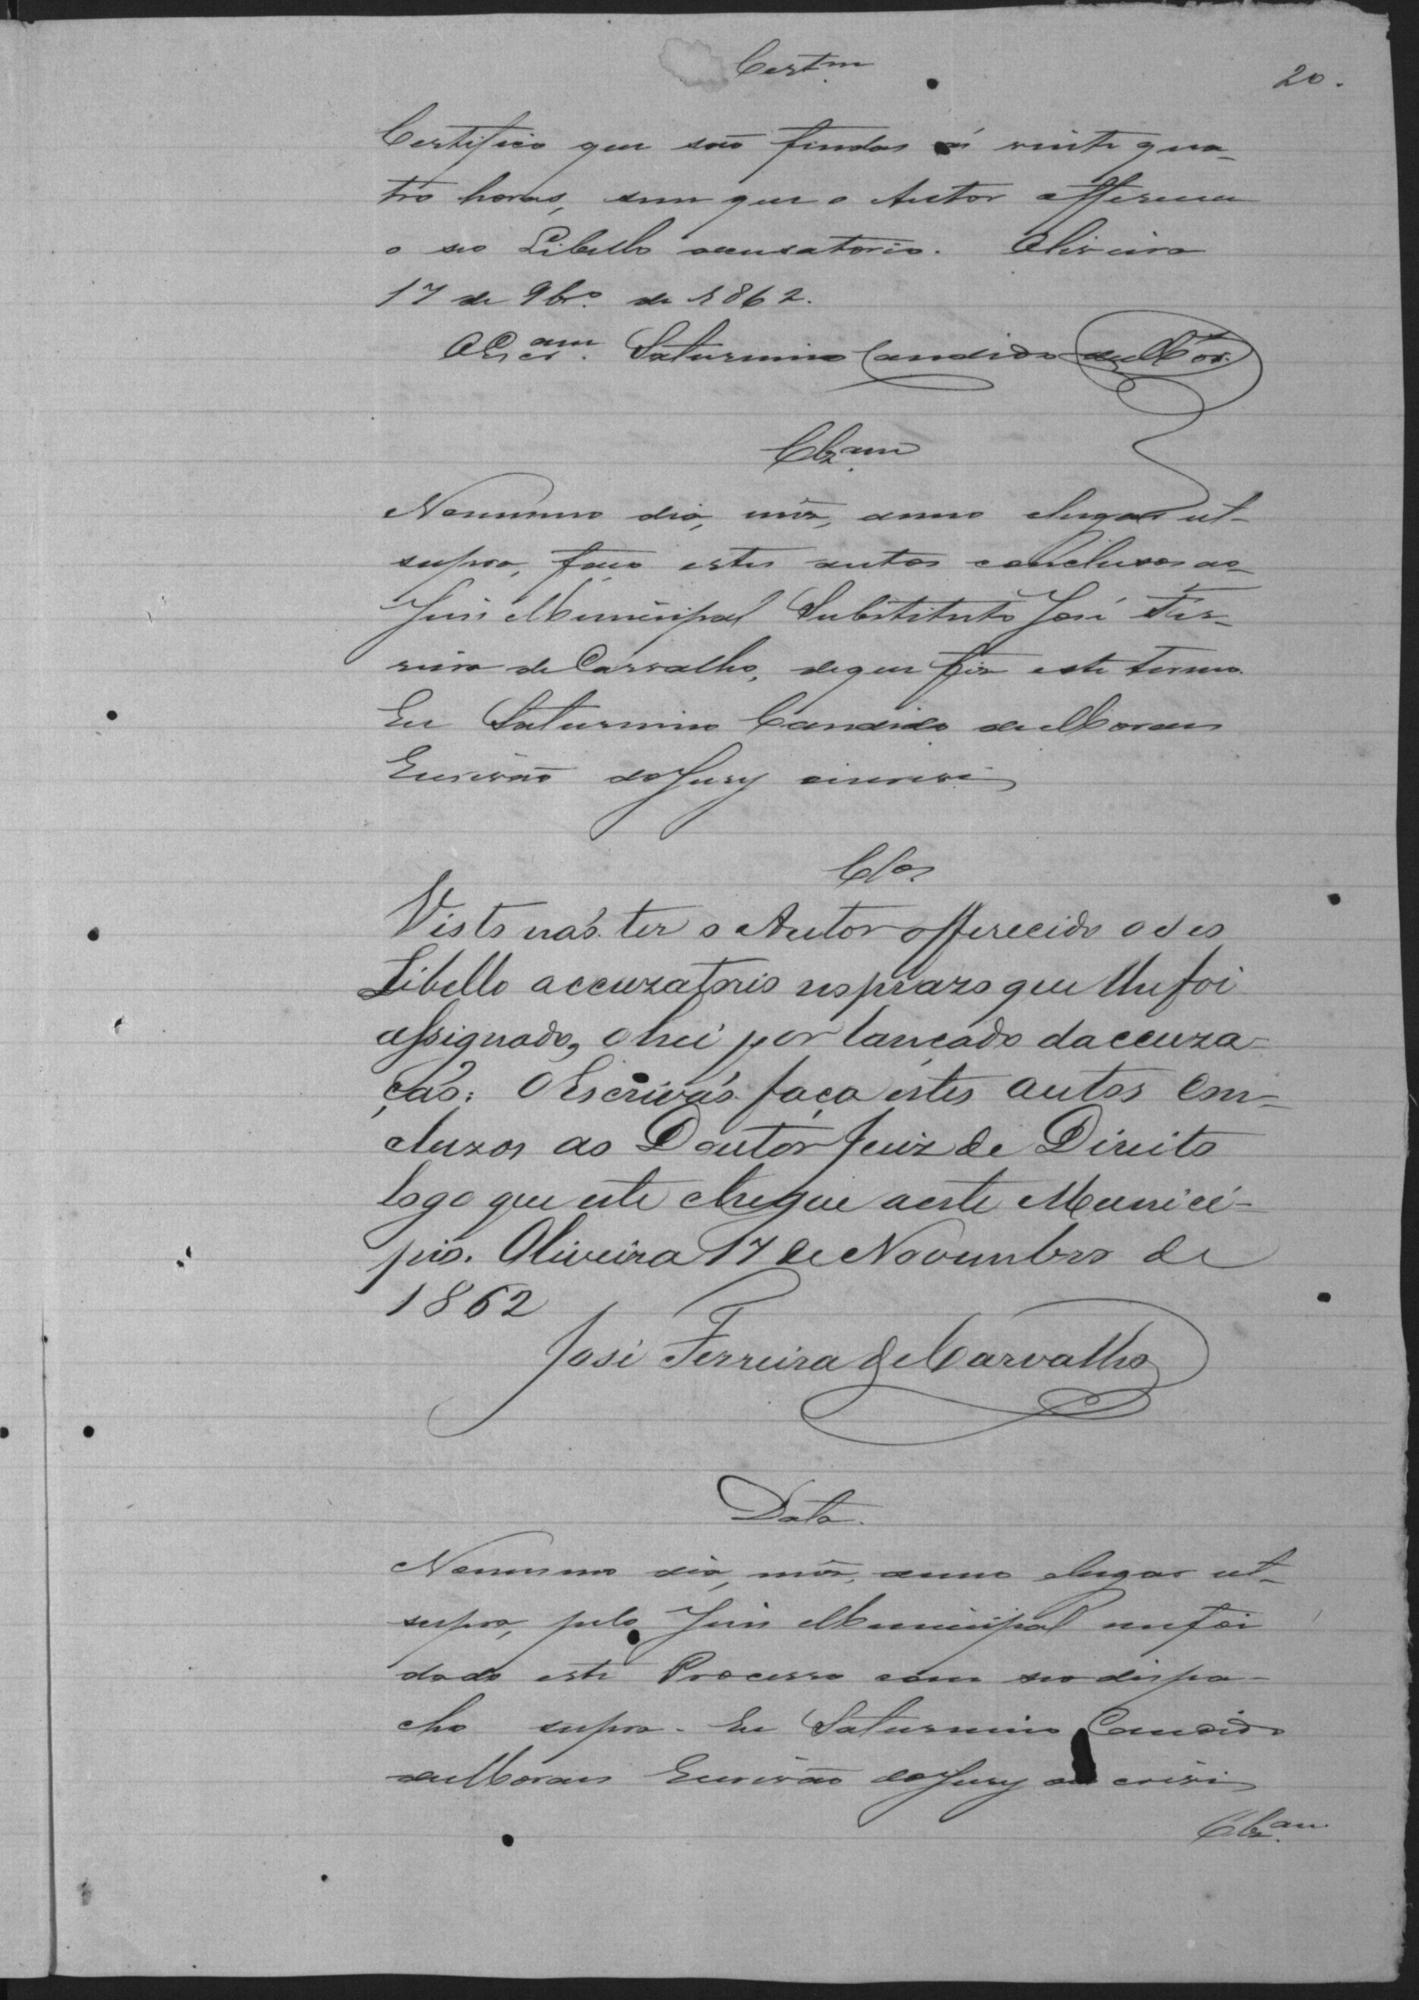 Certam
20.
Certifico que são findas as vinte qua-
tro horas, sem que o Autor offerecese
o seo Libello accusatorio. Oliveira
17 de 9bro. de 1862.
OEscram. Saturnino Candido de Mor.
Clzam
Nomesmo dia, mês, anno elugar ut-
supra, faço estes autos conclusos ao
Juis Municipal Substituto José Fer-
reira de Carvalho, deque fiz este termo.
Eu Saturnino Candido de Moraes
Escrivão do Jury oescrevi
Clos
Visto não ter o Autor offerecido o seo
Libello accuzatorio no prazo que lhe foi
assignado, ohei por lançado daccuza-
ção: OEscrivão faça estes autos con-
cluzos ao Doutor Juiz de Direito
logo que este chegue aeste Munici-
pio. Oliveira 17 de Novembro de
1862
José Ferreira de Carvalho
Data.
Nomesmo dia, mês, anno elugar ut-
supra, pelo Juis Municipal mefoi
dado este Processo com seo despa-
cho supra. Eu Saturnino Candido
de Moraes Escrivão do Jury oescrevi
Clzam